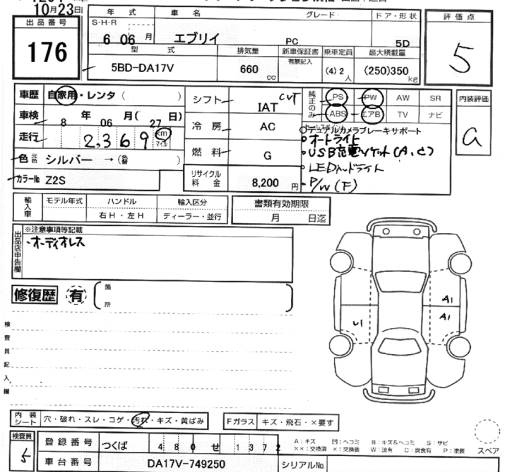 10月23日(金)
出品番号
176
年式
車名
グレード
ドア・形状
S・H・R
6 06月
エブリイ
PC
5D
評価点
5
型式
排気量
新車保証書
乗車定員
最大積載量
5BD-DA17V
660 cc
有無記入
(4) 2 人
(250)350 kg
車歴 自家用・レンタ( )
車検 8 年 06 月( 27 日)
走行 2,369 km マイル
色 シルバー →( )
カラーNo Z2S
シフト IAT CVT
冷房 AC
燃料 G
リサイクル料金 8,200 円
純正のみ
PS PW AW SR
ABS エアB TV ナビ
内装評価
a
デュアルカメラブレーキサポート
・オートライト
・USB充電ソケット(A,C)
・LEDヘッドライト
・P/W(F)
輸入車
モデル年式
ハンドル
輸入区分
右H・左H
ディーラー・並行
書類有効期限
月 日迄
出品店申告欄
※注意事項等記載
・オーディオレス
修復歴 有
箇所
検査員記入欄
A1
A1
U1
内装シート
穴・破れ・スレ・コゲ・汚れ・キズ・黄ばみ
Fガラス キズ・飛石・×要す
検査員
5
登録番号 つくば 480 せ 1372
車台番号 DA17V-749250
シリアルNo
A:キズ 凹:ヘコミ B:キズ&ヘコミ S:サビ
××:交換済 ×:交換要 W:波有 C:腐食有 P:塗装
スペア